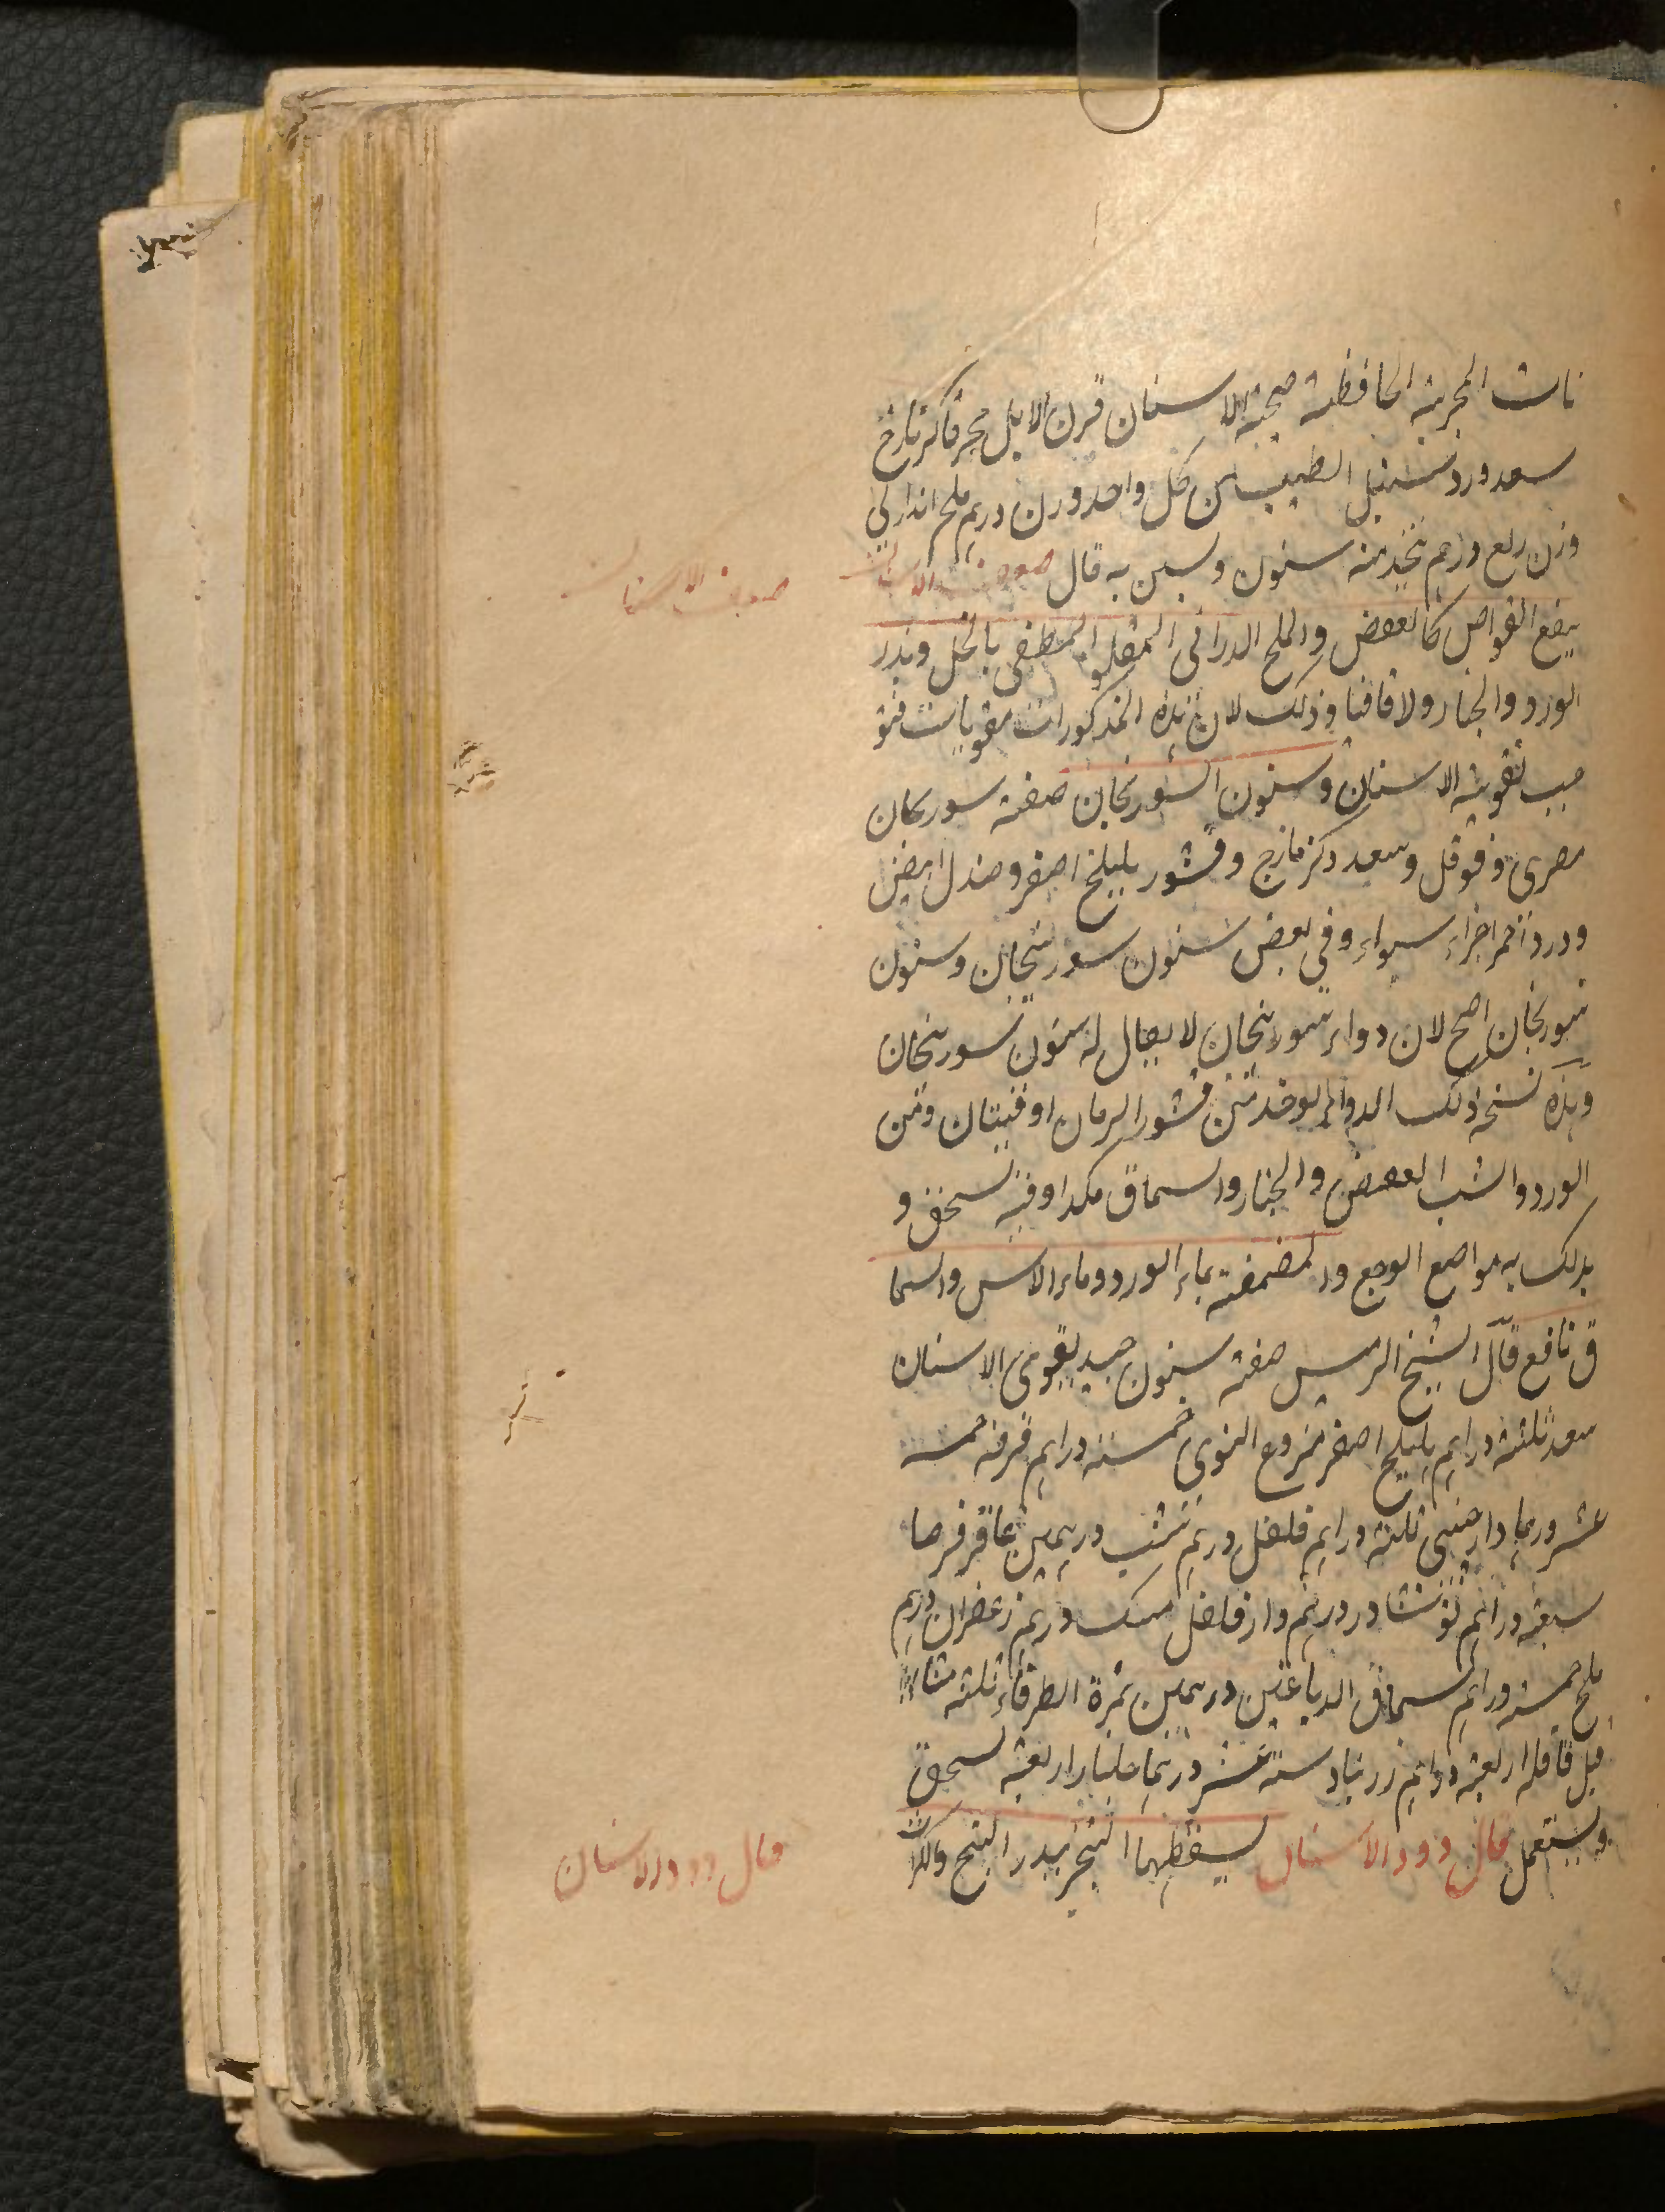 نات المجربة الحافظة صحة الاسنان قرن الايل محرقا كزمازج
سعد ورد سنبل الطيب من كل واحد وزن درهم ملح اندرانى
وزن ربع درهم يتخذ منه سنون ويسن به قال ضعف الاسنان
ضعف الاسنان
ينفع القوابض كالعفص والملح الدرانى المقلو المطفى بالخل وبذر
الورد والجلنار ولاقاقيا وذلك لان هذه المذكورات مقويات فتو
جب تقوية الاسنان وسنون السورنجان صفته سورنجان
مصرى وفوفل وسعد وكزمازج وقشور هليلج اصفر وصندل ابيض
وورد احمر اجزاء سواء وفى بعض سنون سورنجان وسنون
سورنجان اصح لان دواء سورنجان لا يقال له سنون سورنجان
وهذه نسخة ذلك الدواء يوخذ من قشور الرمان اوقيتان ومن
الورد والشب العفص والجلنار والسماق مكد اوقية يسحق و
يدلك به مواضع الوجع والمضمضة بماء الورد وماء الاس والسما
ق نافع قال الشيخ الرييس صفته سنون جيد يقوى الاسنان
سعد ثلثة دراهم هليلج اصفر منزوع النوى خمسة دراهم قرفة خمسة
عشر درهما دارصينى ثلثة دراهم فلفل درهم شب درهمين عاقرقرحا
سبعة دراهم نوشادر درهم دارفلفل مسك درهم زعفران درهم
ملح خمسة دراهم سماق الدباغين درهمين ثمرة الطرفاء ثلثة مثا
قيل قاقلة اربعة دراهم زرنباد ستة عشر درهما جلنار اربعة يسحق
ويستعمل قال دود الاسنان يسقطها التبخر ببذر البنج والكراث
قال دود الاسنان